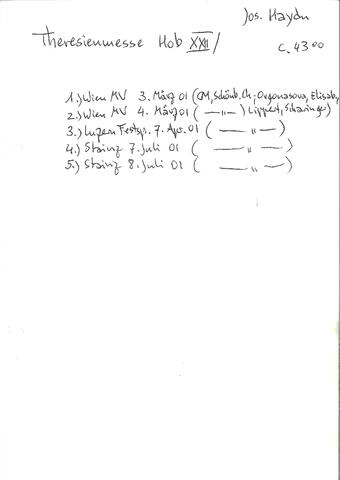 Jos. Haydn
Theresienmesse Hob XXII/
c. 43 00
1.) Wien MV 3. März 01 (CM, Schönb. Ch; Orgonasova, Elisab,
2.) Wien MV 4. März 01 ( —〃— ) Lippert, Scharinger)
3.) Luzern Festsp. 7. Apr. 01 ( —〃— )
4.) Stainz 7. Juli 01 ( —〃— )
5.) Stainz 8. Juli 01 ( —〃— )